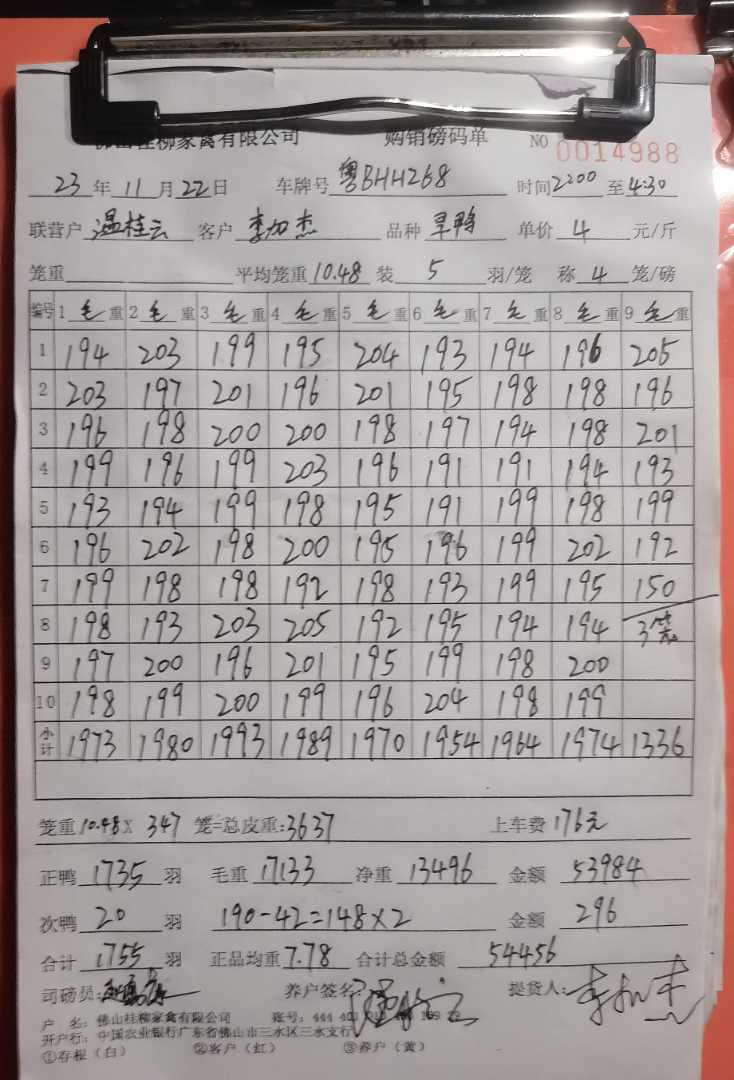 佛山桂柳家禽有限公司 购销磅码单 NO 0014988
23 年 11 月 22 日 车牌号 粤BHH268 时间 2200 至 4:30
联营户 温桂云 客户 李加杰 品种 旱鸭 单价 4 元/斤
笼重 平均笼重 10.48 装 5 羽/笼 称 4 笼/磅
编号 1 毛 重 2 毛 重 3 毛 重 4 毛 重 5 毛 重 6 毛 重 7 毛 重 8 毛 重 9 毛 重
1 194 203 199 195 204 193 194 196 205
2 203 197 201 196 201 195 198 198 196
3 196 198 200 200 198 197 194 198 201
4 199 196 199 203 196 191 191 194 193
5 193 194 199 198 195 191 199 198 199
6 196 202 198 200 195 196 199 202 192
7 199 198 198 192 198 193 199 195 150
8 198 193 203 205 192 195 194 194 3笼
9 197 200 196 201 195 199 198 200
10 198 199 200 199 196 204 198 199
小计 1973 1980 1993 1989 1970 1954 1964 1974 1336
笼重 10.48 X 347 笼=总皮重:3637 上车费 176元
正鸭 1735 羽 毛重 17133 净重 13496 金额 53984
次鸭 20 羽 190-42=148×2 金额 296
合计 1755 羽 正品均重 7.78 合计总金额 54456
司磅员: 养户签名: 提货人: 李加杰
户 名: 佛山桂柳家禽有限公司 账号: 444
开户行: 中国农业银行广东省佛山市三水区三水支行
①存根(白) ②客户(红) ③养户(黄)